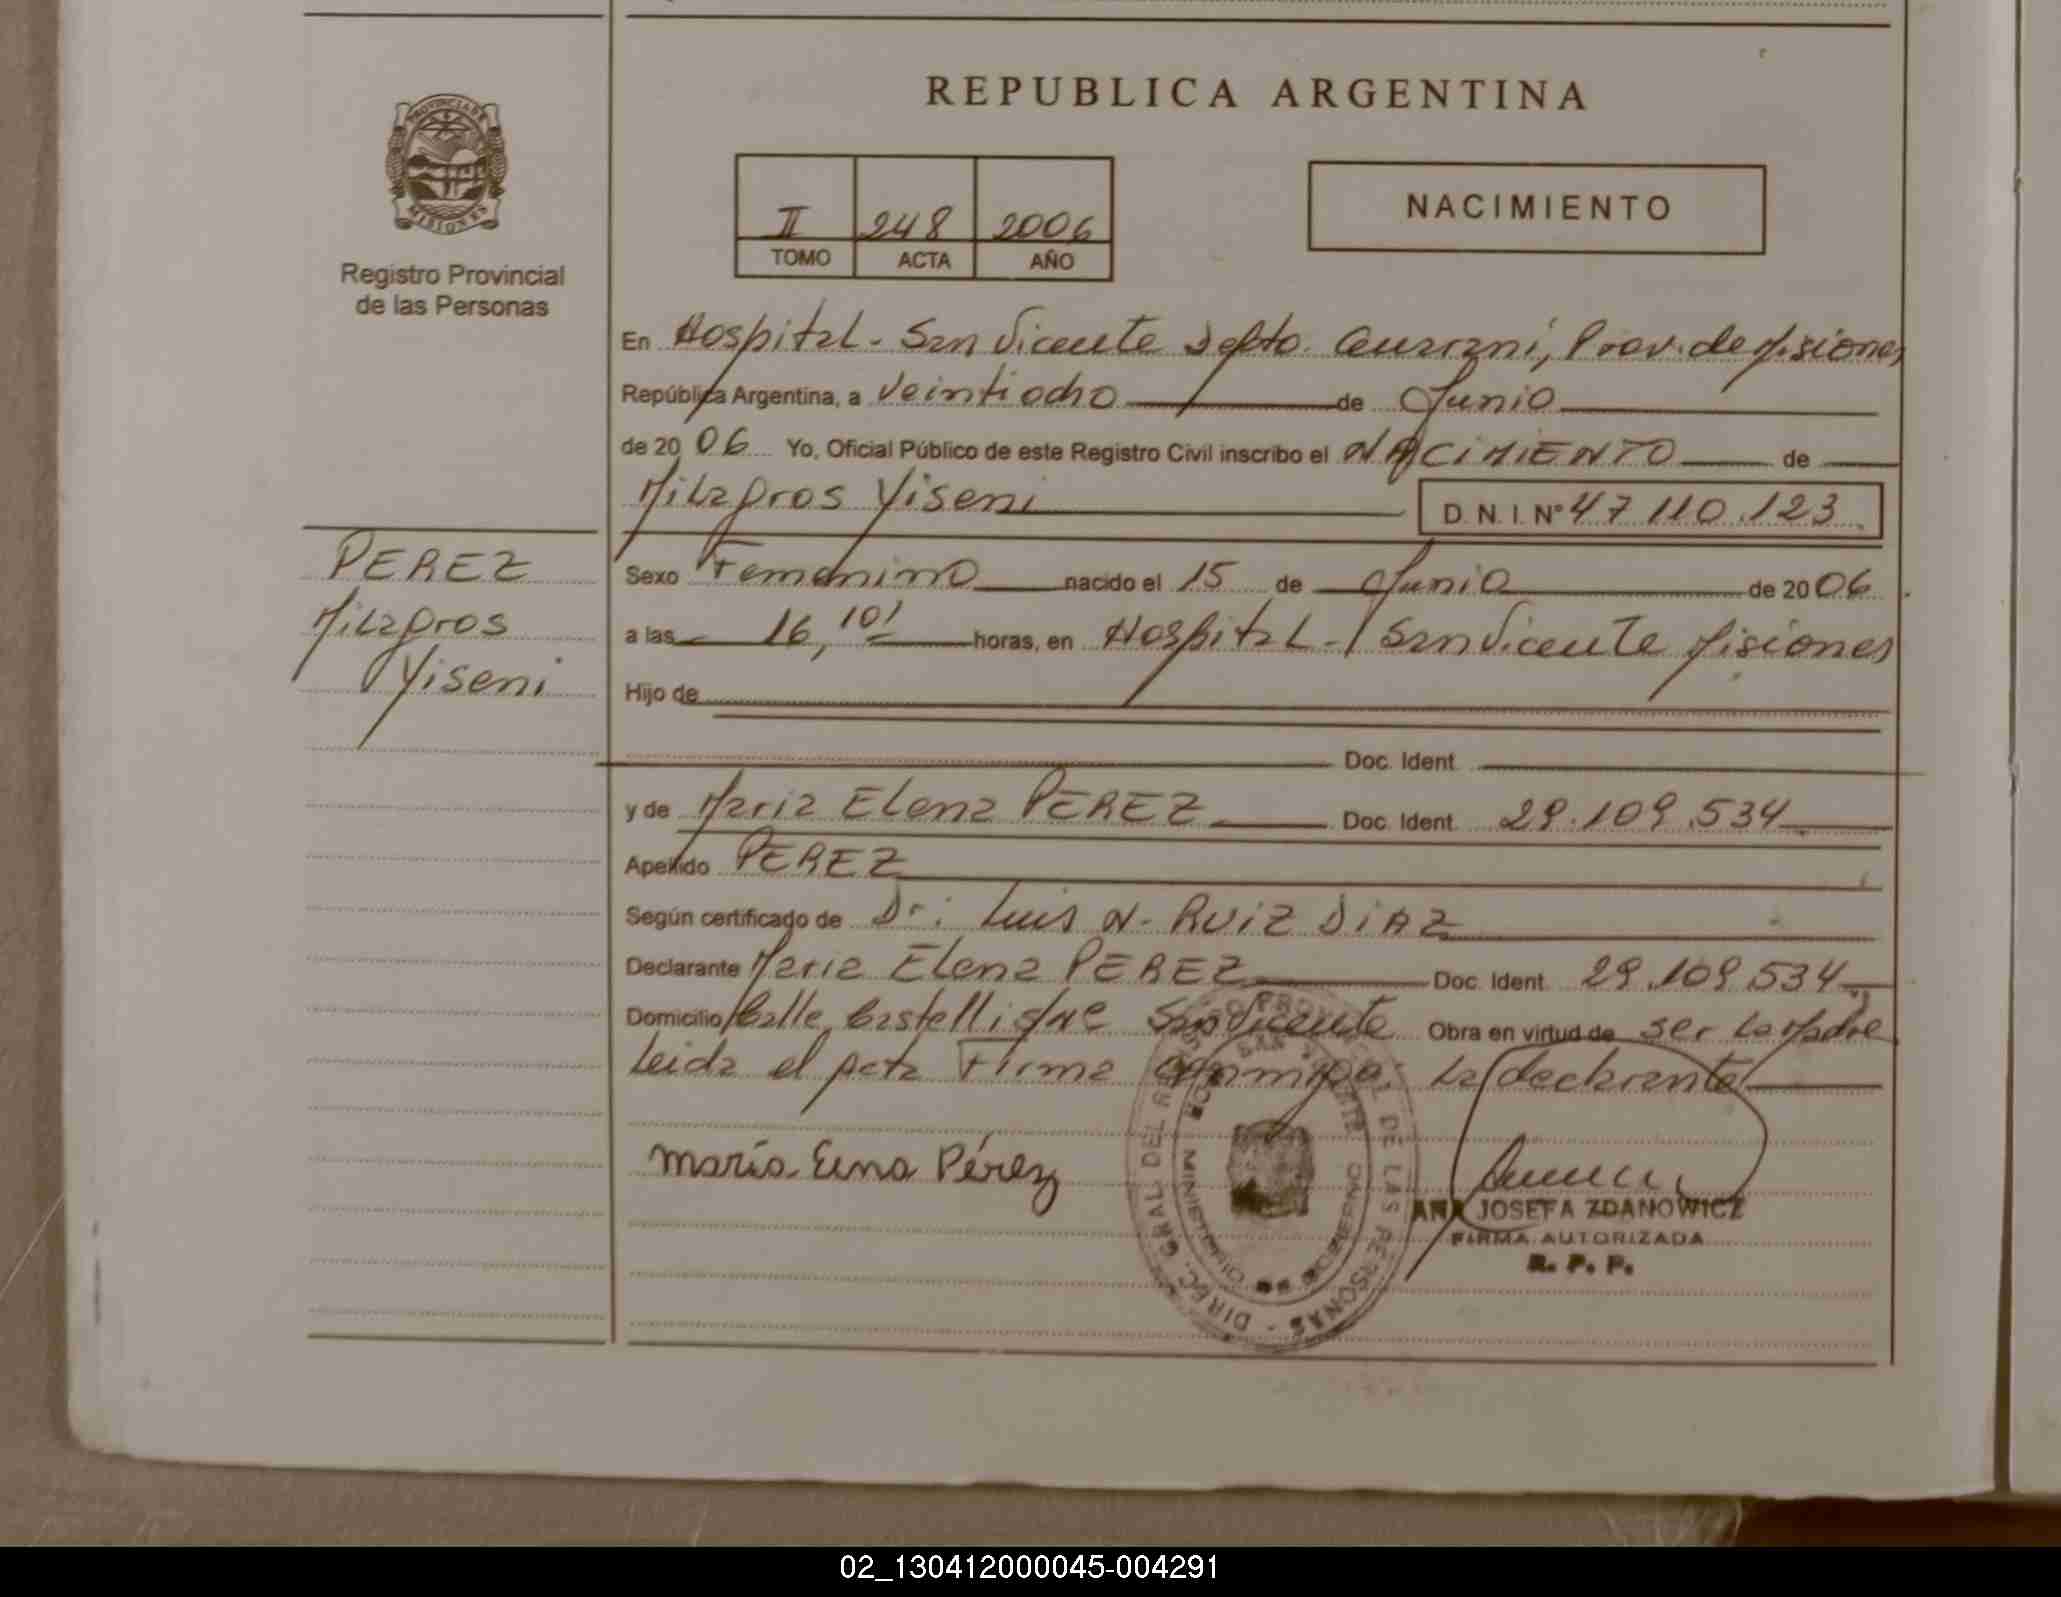 REPUBLICA ARGENTINA
PROVINCIA DE
MISIONES
Registro Provincial
de las Personas
II 248 2006
TOMO ACTA AÑO
NACIMIENTO
En Hospital - San Vicente Depto. Guarani, Prov. de Misiones
República Argentina, a veintiocho de Junio
de 2006 Yo, Oficial Público de este Registro Civil inscribo el NACIMIENTO de
Milagros Yiseni D. N. I. Nº 47 110.123
PEREZ
Milagros
Yiseni
Sexo Femenino nacido el 15 de Junio de 2006
a las 16,10' horas, en Hospital - San Vicente Misiones
Hijo de
Doc. Ident.
y de Maria Elena PEREZ Doc. Ident. 29.109.534
Apellido PEREZ
Según certificado de Dr: Luis N. RUIZ DIAZ
Declarante Maria Elena PEREZ Doc. Ident. 29.109.534
Domicilio Calle Castelli San Vicente Obra en virtud de ser la Madre
Leida el acta Firma conmigo la declarante
maría Elena Pérez
DIREC. GRAL. DEL REGISTRO PROVINCIAL DE LAS PERSONAS -
MINISTERIO DE GOBIERNO
ANA JOSEFA ZDANOWICZ
FIRMA AUTORIZADA
R. P. P.
02_130412000045-004291